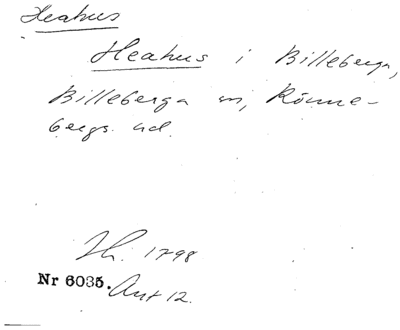 Heahus
Heahus i Billeberga,
Billeberga sn, Rönne-
bergs hd.
Th. 1798
Nr 6035. Ant 12.